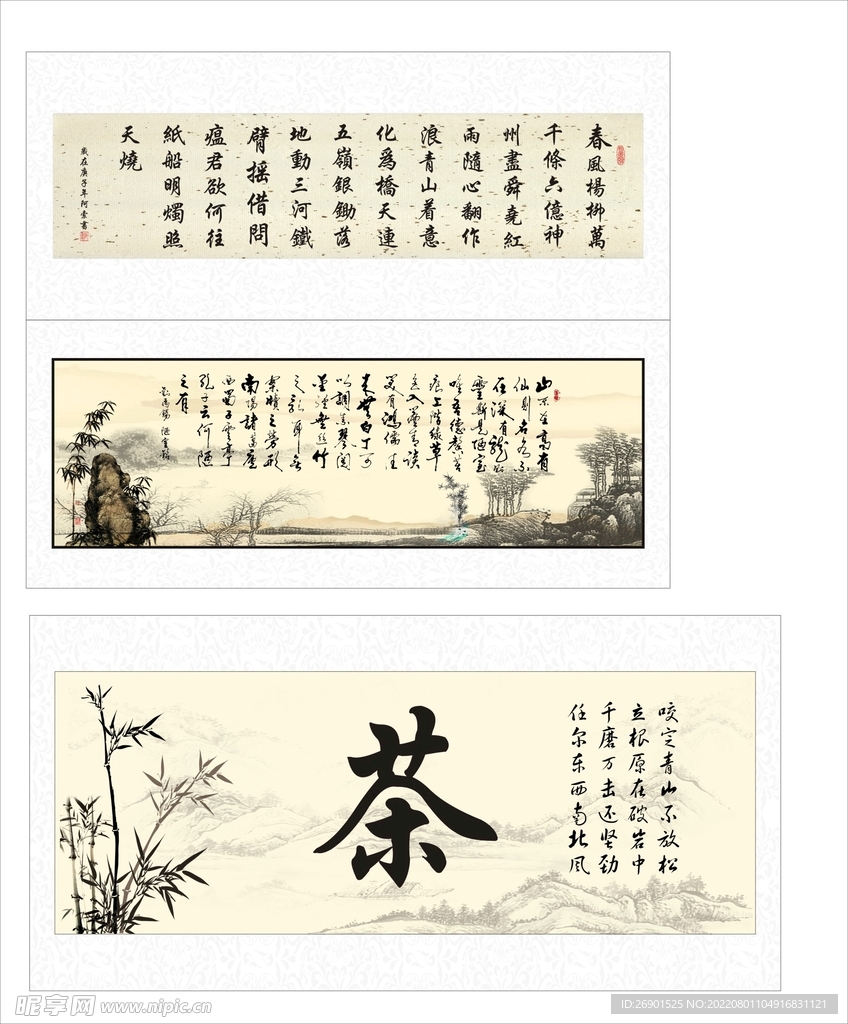 春風楊柳萬
千條六億神
州盡舜堯紅
雨隨心翻作
浪青山着意
化爲橋天連
五嶺銀鋤落
地動三河鐵
臂摇借問
瘟君欲何往
紙船明燭照
天燒
歲在庚子年阿索書
山不在高有
仙則名水不
在深有龍則
靈斯是陋室
唯吾德馨苔
痕上階緑草
色入簾青談
笑有鴻儒往
來無白丁可
以調素琴閱
金經無絲竹
之亂耳無
案牘之勞形
南陽諸葛廬
西蜀子雲亭
孔子云何陋
之有
劉禹錫 陋室銘
茶
咬定青山不放松
立根原在破岩中
千磨万击还坚劲
任尔东西南北风
昵享网 www.nipic.cn
ID:26901525 NO:20220801104916831121